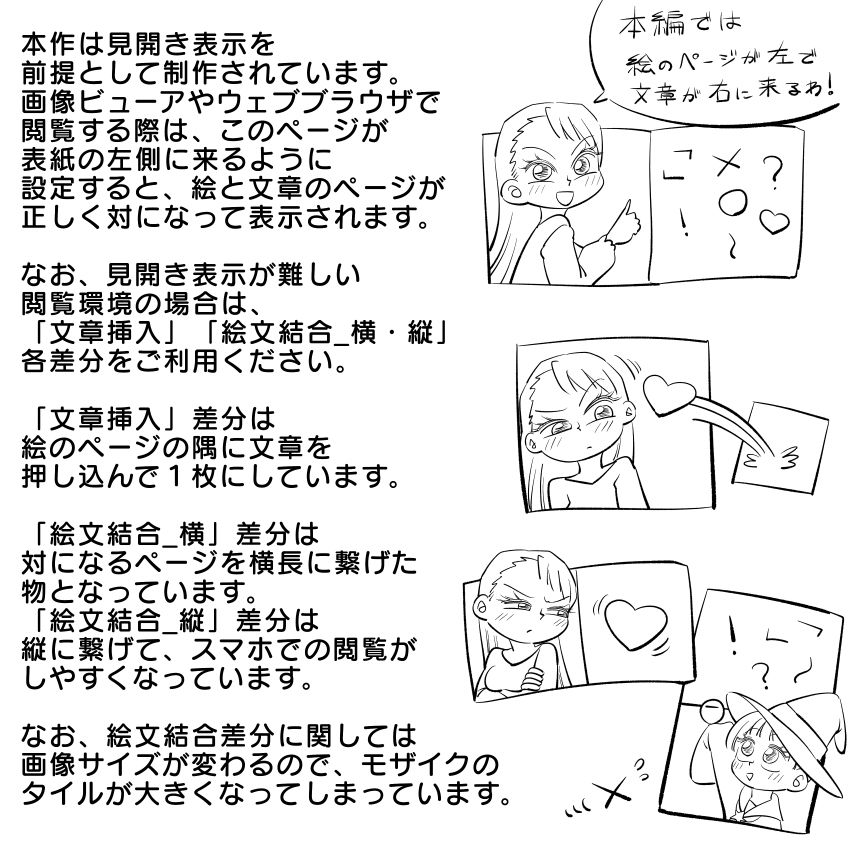 本作は見開き表示を
前提として制作されています。
画像ビューアやウェブブラウザで
閲覧する際は、このページが
表紙の左側に来るように
設定すると、絵と文章のページが
正しく対になって表示されます。
なお、見開き表示が難しい
閲覧環境の場合は、
「文章挿入」「絵文結合_横・縦」
各差分をご利用ください。
「文章挿入」差分は
絵のページの隅に文章を
押し込んで１枚にしています。
「絵文結合_横」差分は
対になるページを横長に繋げた
物となっています。
「絵文結合_縦」差分は
縦に繋げて、スマホでの閲覧が
しやすくなっています。
なお、絵文結合差分に関しては
画像サイズが変わるので、モザイクの
タイルが大きくなってしまっています。
本編では
絵のページが左で
文章が右に来るわ！